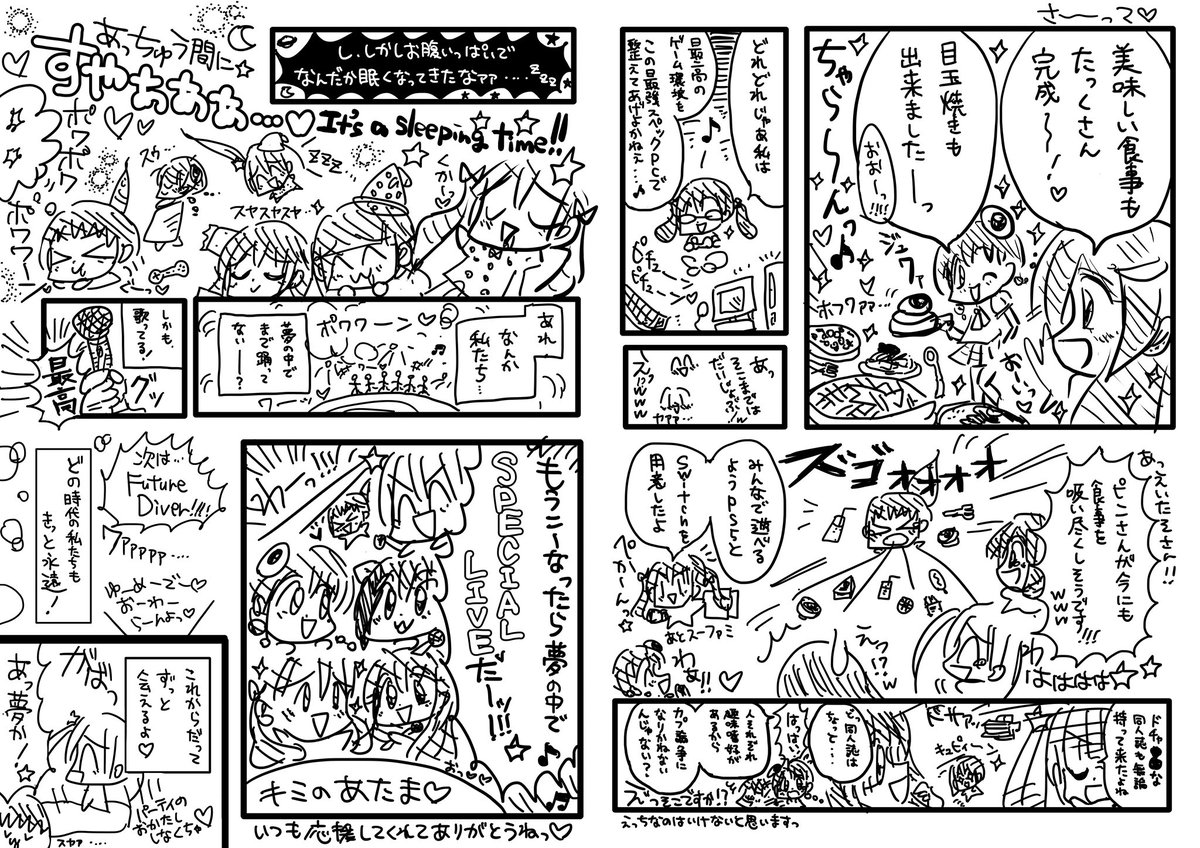 さ〜〜って♡
美味しい食事も
たっくさん
完成〜〜!♡
目玉焼きも
出来ましたーーっ
おおーっ!!!
ちゃららーんっ♪
ジュワァ
ホワァァ…
あーっ♡
どれどれじゃあ私は
最高の
ゲーム環境を
この最強スペックPCで
整えてあげよかねぇ…♪
ピピュ
ピピューン
あっ
そこまでは
だいじょぶっw
えっwww
ヤァァ…
あっえいたそさん!!
ピンさんが今にも
食事を
吸い尽くしそうです!!!
www
ズゴォォォォ
みんなで遊べる
ようPS5と
Switchを
用意したよ
ぺかーんっ
あとスーファミ
わぁ!!♡
えっ!?w
わはははは☆
ドチャ●●な
同人誌も無論
持って来たよね
ドサァッ
キュピィーン
どっ同人誌は
ちょっと…
はいっ!
人それぞれ
趣味嗜好が
あるから
カプ戦争に
なりかねない
んじゃない?
ズっそこですか!?
えっちなのはいけないと思いますっ
し、しかしお腹いっぱいで
なんだか眠くなってきたなァァ....zzz
あっちゅう間に☆
すやぁぁぁ…♡
It's a sleeping time!!
ポワポワ
ポワワー
スゥー
zzz
スヤスヤスヤ…
くかーっ
あれ、
なんか
私たち…
ポワワーン♡
夢の中で
まで踊って
ないー?
ワーーッ
しかも、
歌ってる!
グッ
最高
もうこーなったら夢の中で♪
SPECIAL
LIVEだーッ!!!☆
おっ♡
キミのあたま♡
いつも応援してくれてありがとうねっ♡
次は…
Future
Diver!!!!
ワァァァァァ....
ゆーめーでー♡
おーわー
らーんよっ♡
どの時代の私たちも
きっと永遠!
これからだって
ずっと
会えるよ♡
がばっ
あっ夢か!
パーティの
おかたし
しなくちゃ♡
スヤァ…